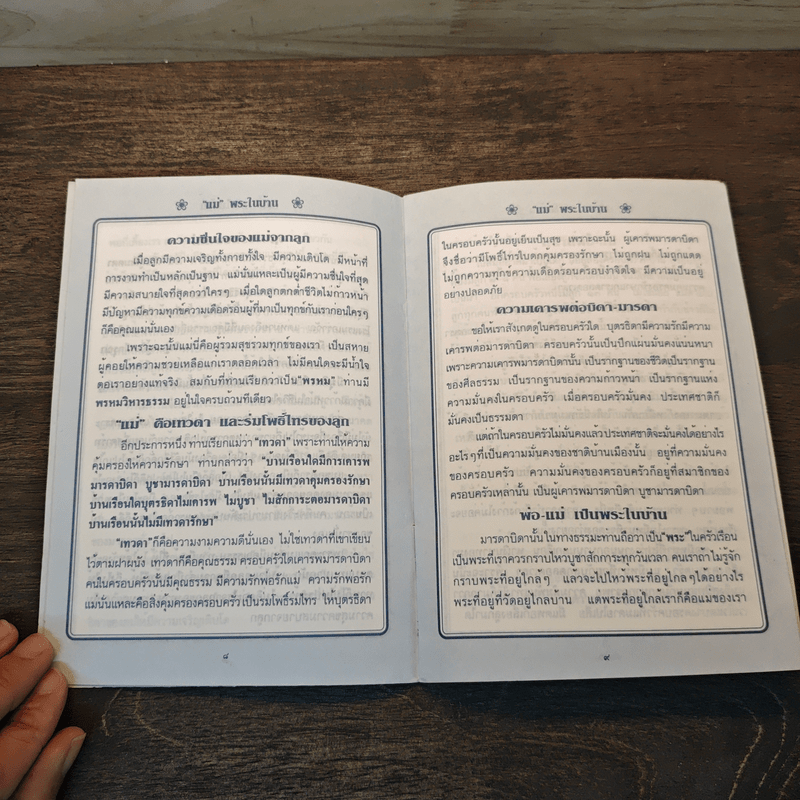 "แม่" พระในบ้าน
ความชื่นใจของแม่จากลูก
เมื่อลูกมีความเจริญทั้งกายทั้งใจ มีความเติบโต มีหน้าที่
การงานทำเป็นหลักเป็นฐาน แม่นั่นแหละเป็นผู้มีความชื่นใจที่สุด
มีความสบายใจที่สุดกว่าใครๆ เมื่อใดลูกตกต่ำชีวิตไม่ก้าวหน้า
มีปัญหามีความทุกข์ความเดือดร้อนผู้ที่มาเป็นทุกข์กับเราก่อนใครๆ
ก็คือคุณแม่นั่นเอง
เพราะฉะนั้นแม่นี่คือผู้ร่วมสุขร่วมทุกข์ของเรา เป็นสหาย
ผู้คอยให้ความช่วยเหลือแก่เราตลอดเวลา ไม่มีคนใดจะมีน้ำใจ
ต่อเราอย่างแท้จริง สมกับที่ท่านเรียกว่าเป็น"พรหม" ท่านมี
พรหมวิหารธรรม อยู่ในใจครบถ้วนทีเดียว
"แม่" คือเทวดา และร่มโพธิ์ไทรของลูก
อีกประการหนึ่ง ท่านเรียกแม่ว่า "เทวดา" เพราะท่านให้ความ
คุ้มครองให้ความรักษา ท่านกล่าวว่า "บ้านเรือนใดมีการเคารพ
มารดาบิดา บูชามารดาบิดา บ้านเรือนนั้นมีเทวดาคุ้มครองรักษา
บ้านเรือนใดบุตรธิดาไม่เคารพ ไม่บูชา ไม่สักการะต่อมารดาบิดา
บ้านเรือนนั้นไม่มีเทวดารักษา"
"เทวดา"ก็คือความงามความดีนั่นเอง ไม่ใช่เทวดาที่เขาเขียน
ไว้ตามฝาผนัง เทวดาก็คือคุณธรรม ครอบครัวใดเคารพมารดาบิดา
คนในครอบครัวนั้นมีคุณธรรม มีความรักพ่อรักแม่ ความรักพ่อรัก
แม่นั่นแหละคือสิ่งคุ้มครองครอบครัวเป็นร่มโพธิ์ร่มไทร ให้บุตรธิดา
๘
"แม่" พระในบ้าน
ในครอบครัวนั้นอยู่เย็นเป็นสุข เพราะฉะนั้น ผู้เคารพมารดาบิดา
จึงชื่อว่ามีโพธิ์ไทรใบดกคุ้มครองรักษา ไม่ถูกฝน ไม่ถูกแดด
ไม่ถูกความทุกข์ความเดือดร้อนครอบงำจิตใจ มีความเป็นอยู่
อย่างปลอดภัย
ความเคารพต่อบิดา-มารดา
ขอให้เราสังเกตดูในครอบครัวใด บุตรธิดามีความรักมีความ
เคารพต่อมารดาบิดา ครอบครัวนั้นเป็นปึกแผ่นมั่นคงแน่นหนา
เพราะความเคารพมารดาบิดานั้น เป็นรากฐานของชีวิตเป็นรากฐาน
ของศีลธรรม เป็นรากฐานของความก้าวหน้า เป็นรากฐานแห่ง
ความมั่นคงในครอบครัว เมื่อครอบครัวมั่นคง ประเทศชาติก็
มั่นคงเป็นธรรมดา
แต่ถ้าในครอบครัวไม่มั่นคงแล้วประเทศชาติจะมั่นคงได้อย่างไร
อะไรๆที่เป็นความมั่นคงของชาติบ้านเมืองนั้น อยู่ที่ความมั่นคง
ของครอบครัว ความมั่นคงของครอบครัวก็อยู่ที่สมาชิกของ
ครอบครัวเหล่านั้น เป็นผู้เคารพมารดาบิดา บูชามารดาบิดา
พ่อ-แม่ เป็นพระในบ้าน
มารดาบิดานั้นในทางธรรมะท่านถือว่าเป็น "พระ"ในครัวเรือน
เป็นพระที่เราควรกราบไหว้บูชาสักการะทุกวันเวลา คนเราถ้าไม่รู้จัก
กราบพระที่อยู่ใกล้ๆ แล้วจะไปไหว้พระที่อยู่ไกลๆได้อย่างไร
พระที่อยู่ที่วัดอยู่ไกลบ้าน แต่พระที่อยู่ใกล้เราก็คือแม่ของเรา
๙